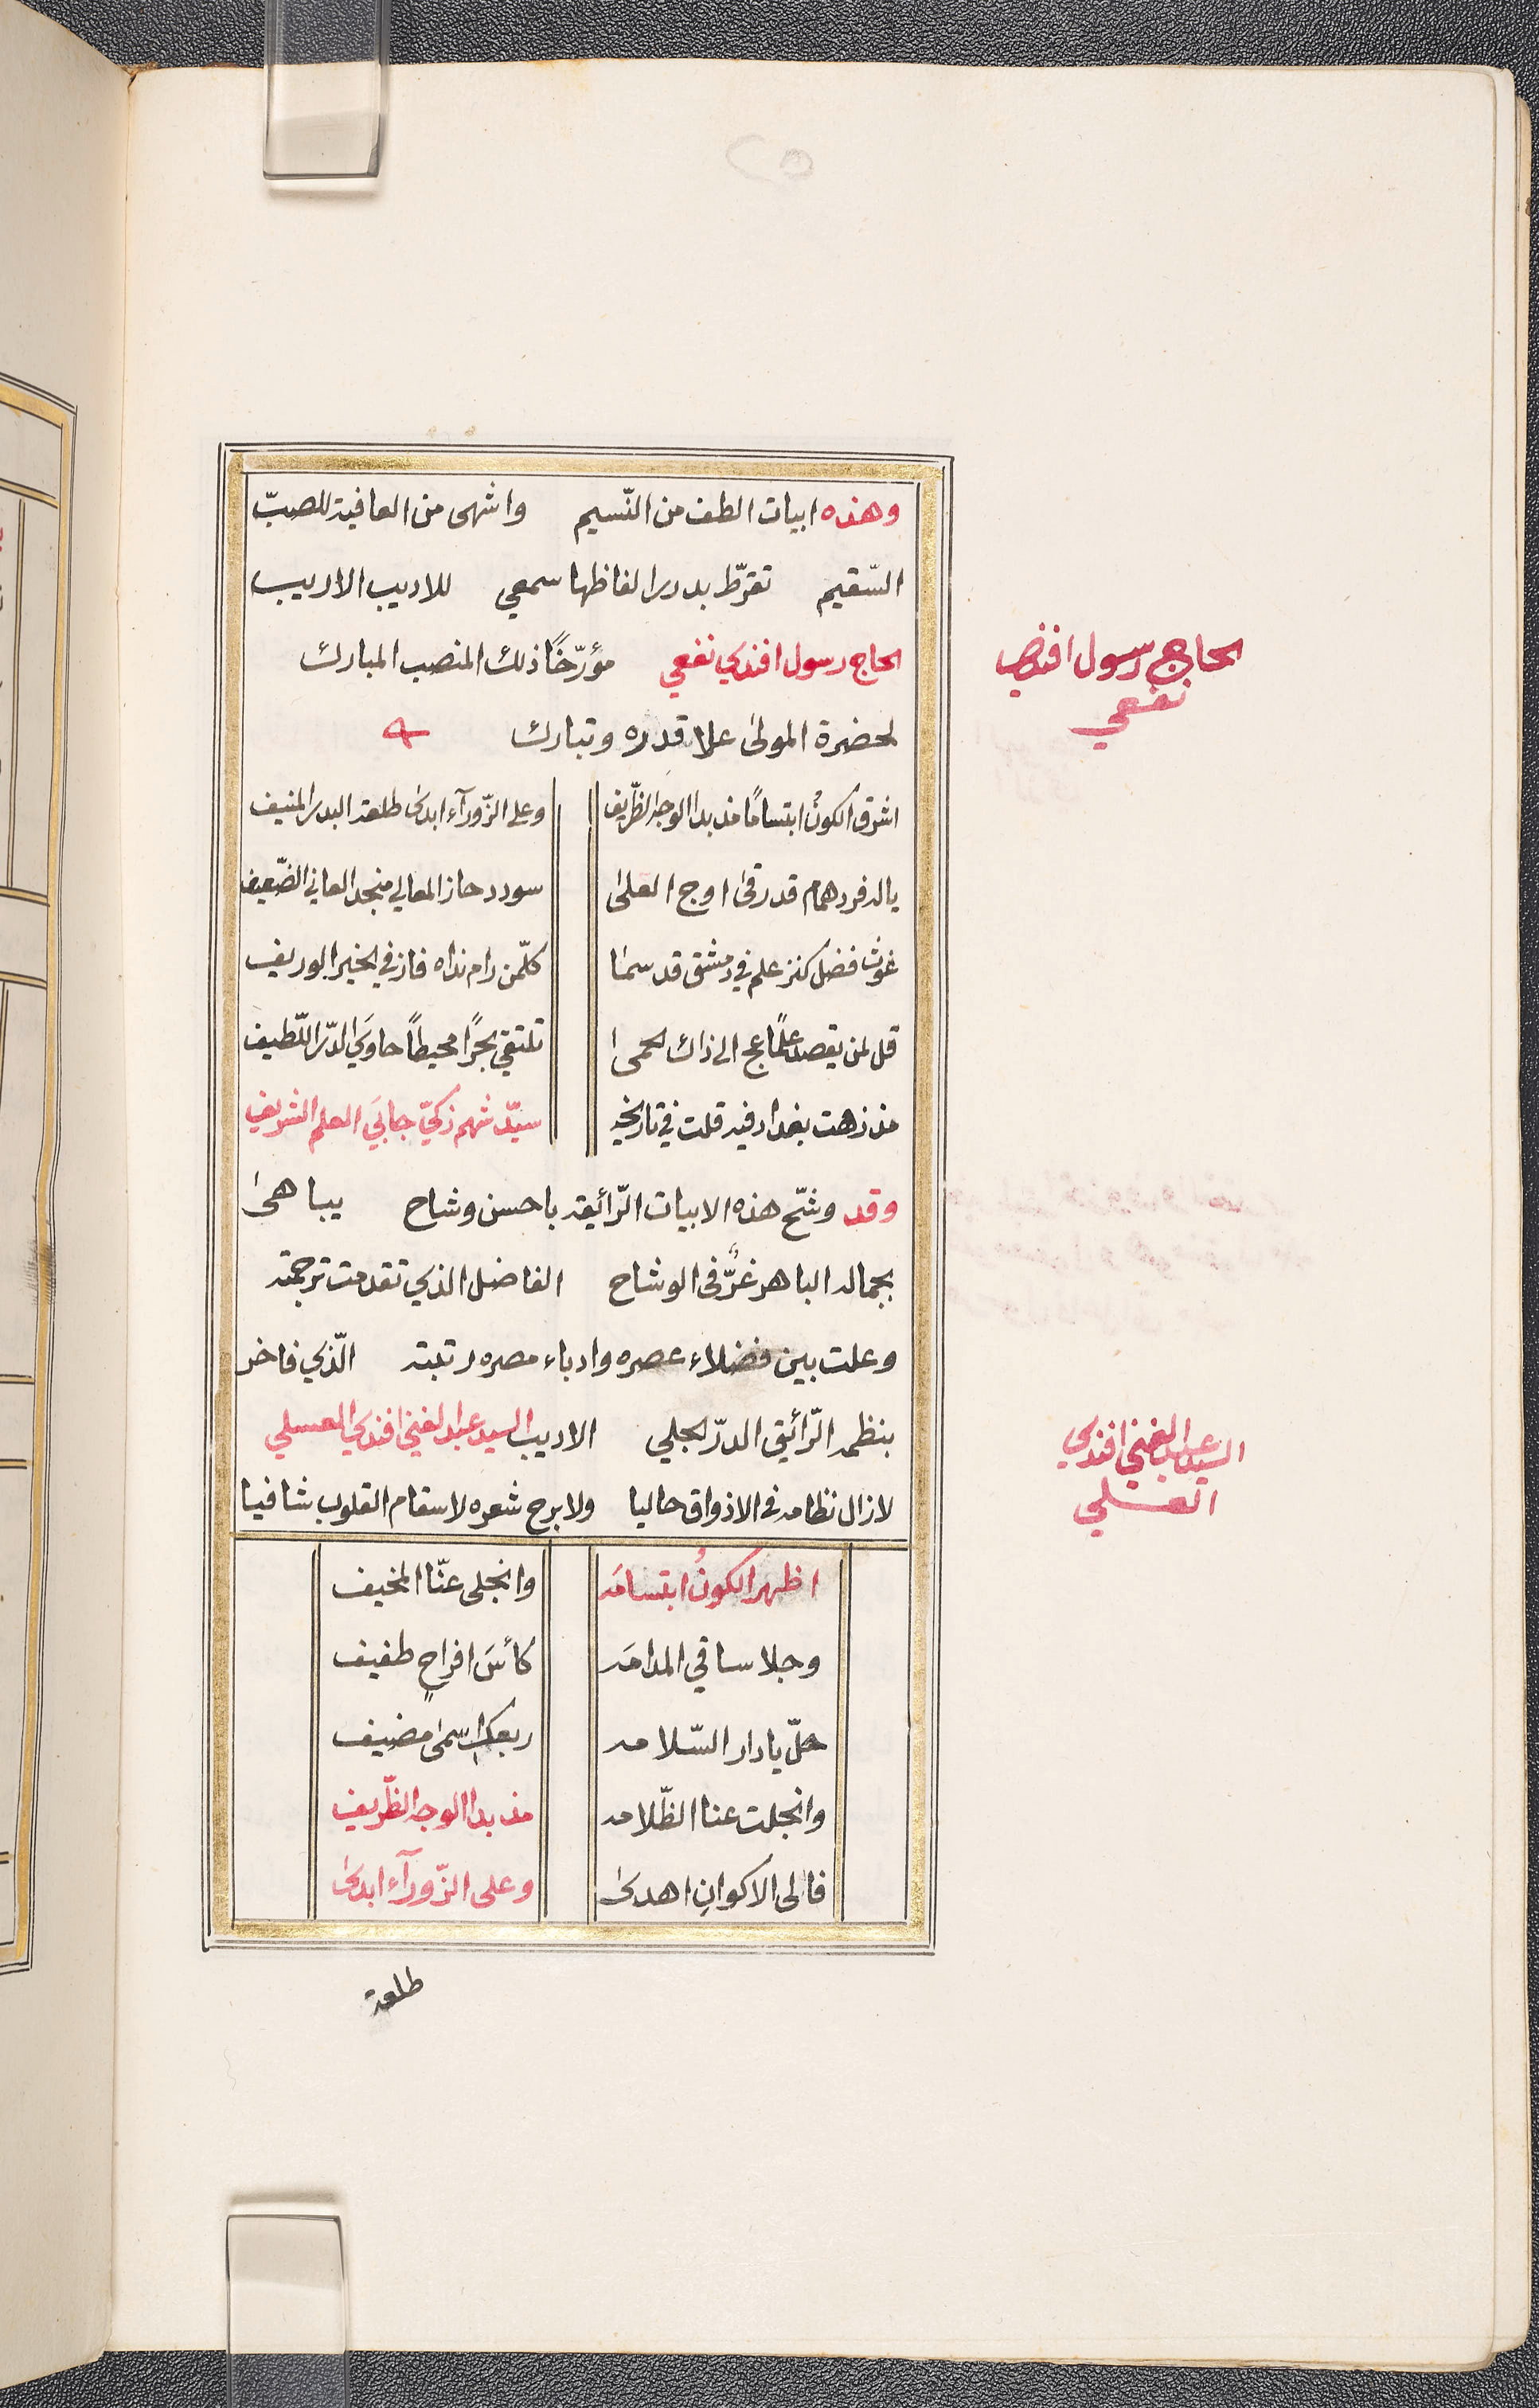 وهذه ابيات الطف من النّسيم واشهى من العافية للصبّ
السّقيم تقرّط بدرر الفاظها سمعي للاديب الاريب
الحاج رسول افندي نفعي مؤرّخًا ذلك المنصب المبارك
لحضرة المولى علا قدره وتبارك
اشرق الكونُ ابتسامًا مذ بدا الوجه الظّريف وعلى الزّورآء ابدى طلعة البدر المنيف
ياله فرد همام قد رقى اوج العلى سودد حاز المعالي منجد العاني الضّعيف
غوث فضل كنز علم في دمشق قد سما كلّ من رام نداه فاز في الخير الوريف
قل لمن يقصد علمًا عج الى ذاك الحمى تلتقي بحرًا محيطاً حاويَ الدّر اللّطيف
مذ زهت بغداد فيه قلت في تاريخه سيّد شهم زكيّ جابيَ العلم الشريف
وقد وشّح هذه الابيات الرّائقة باحسن وشاح يباهى
بجماله الباهر غرّ في الوشاح الفاضل الذي تقدمت ترجمته
وعلت بين فضلاء عصره وادباء مصره رتبته الّذي فاخر
بنظمه الرّائق الدرّ الجلي الاديب السيد عبد الغني افندي العسلي
لازال نظامه في الاذواق حاليا ولا برح شعره لاسقام القلوب شافيا
اظهر الكونُ ابتسامَه وانجلى عنّا المخيف
وجلا ساقي المدامَه كأسَ افراحٍ طفيف
حلّ يا دار السّلامه ربعك اسمى مضيف
وانجلت عنا الظّلامه مذ بدا الوجه الظّريف
فالى الاكوانِ اهدى وعلى الزّورآء ابدى
طلعة
الحاج رسول افندي
نفعي
السيد عبد الغني افندي
العسلي